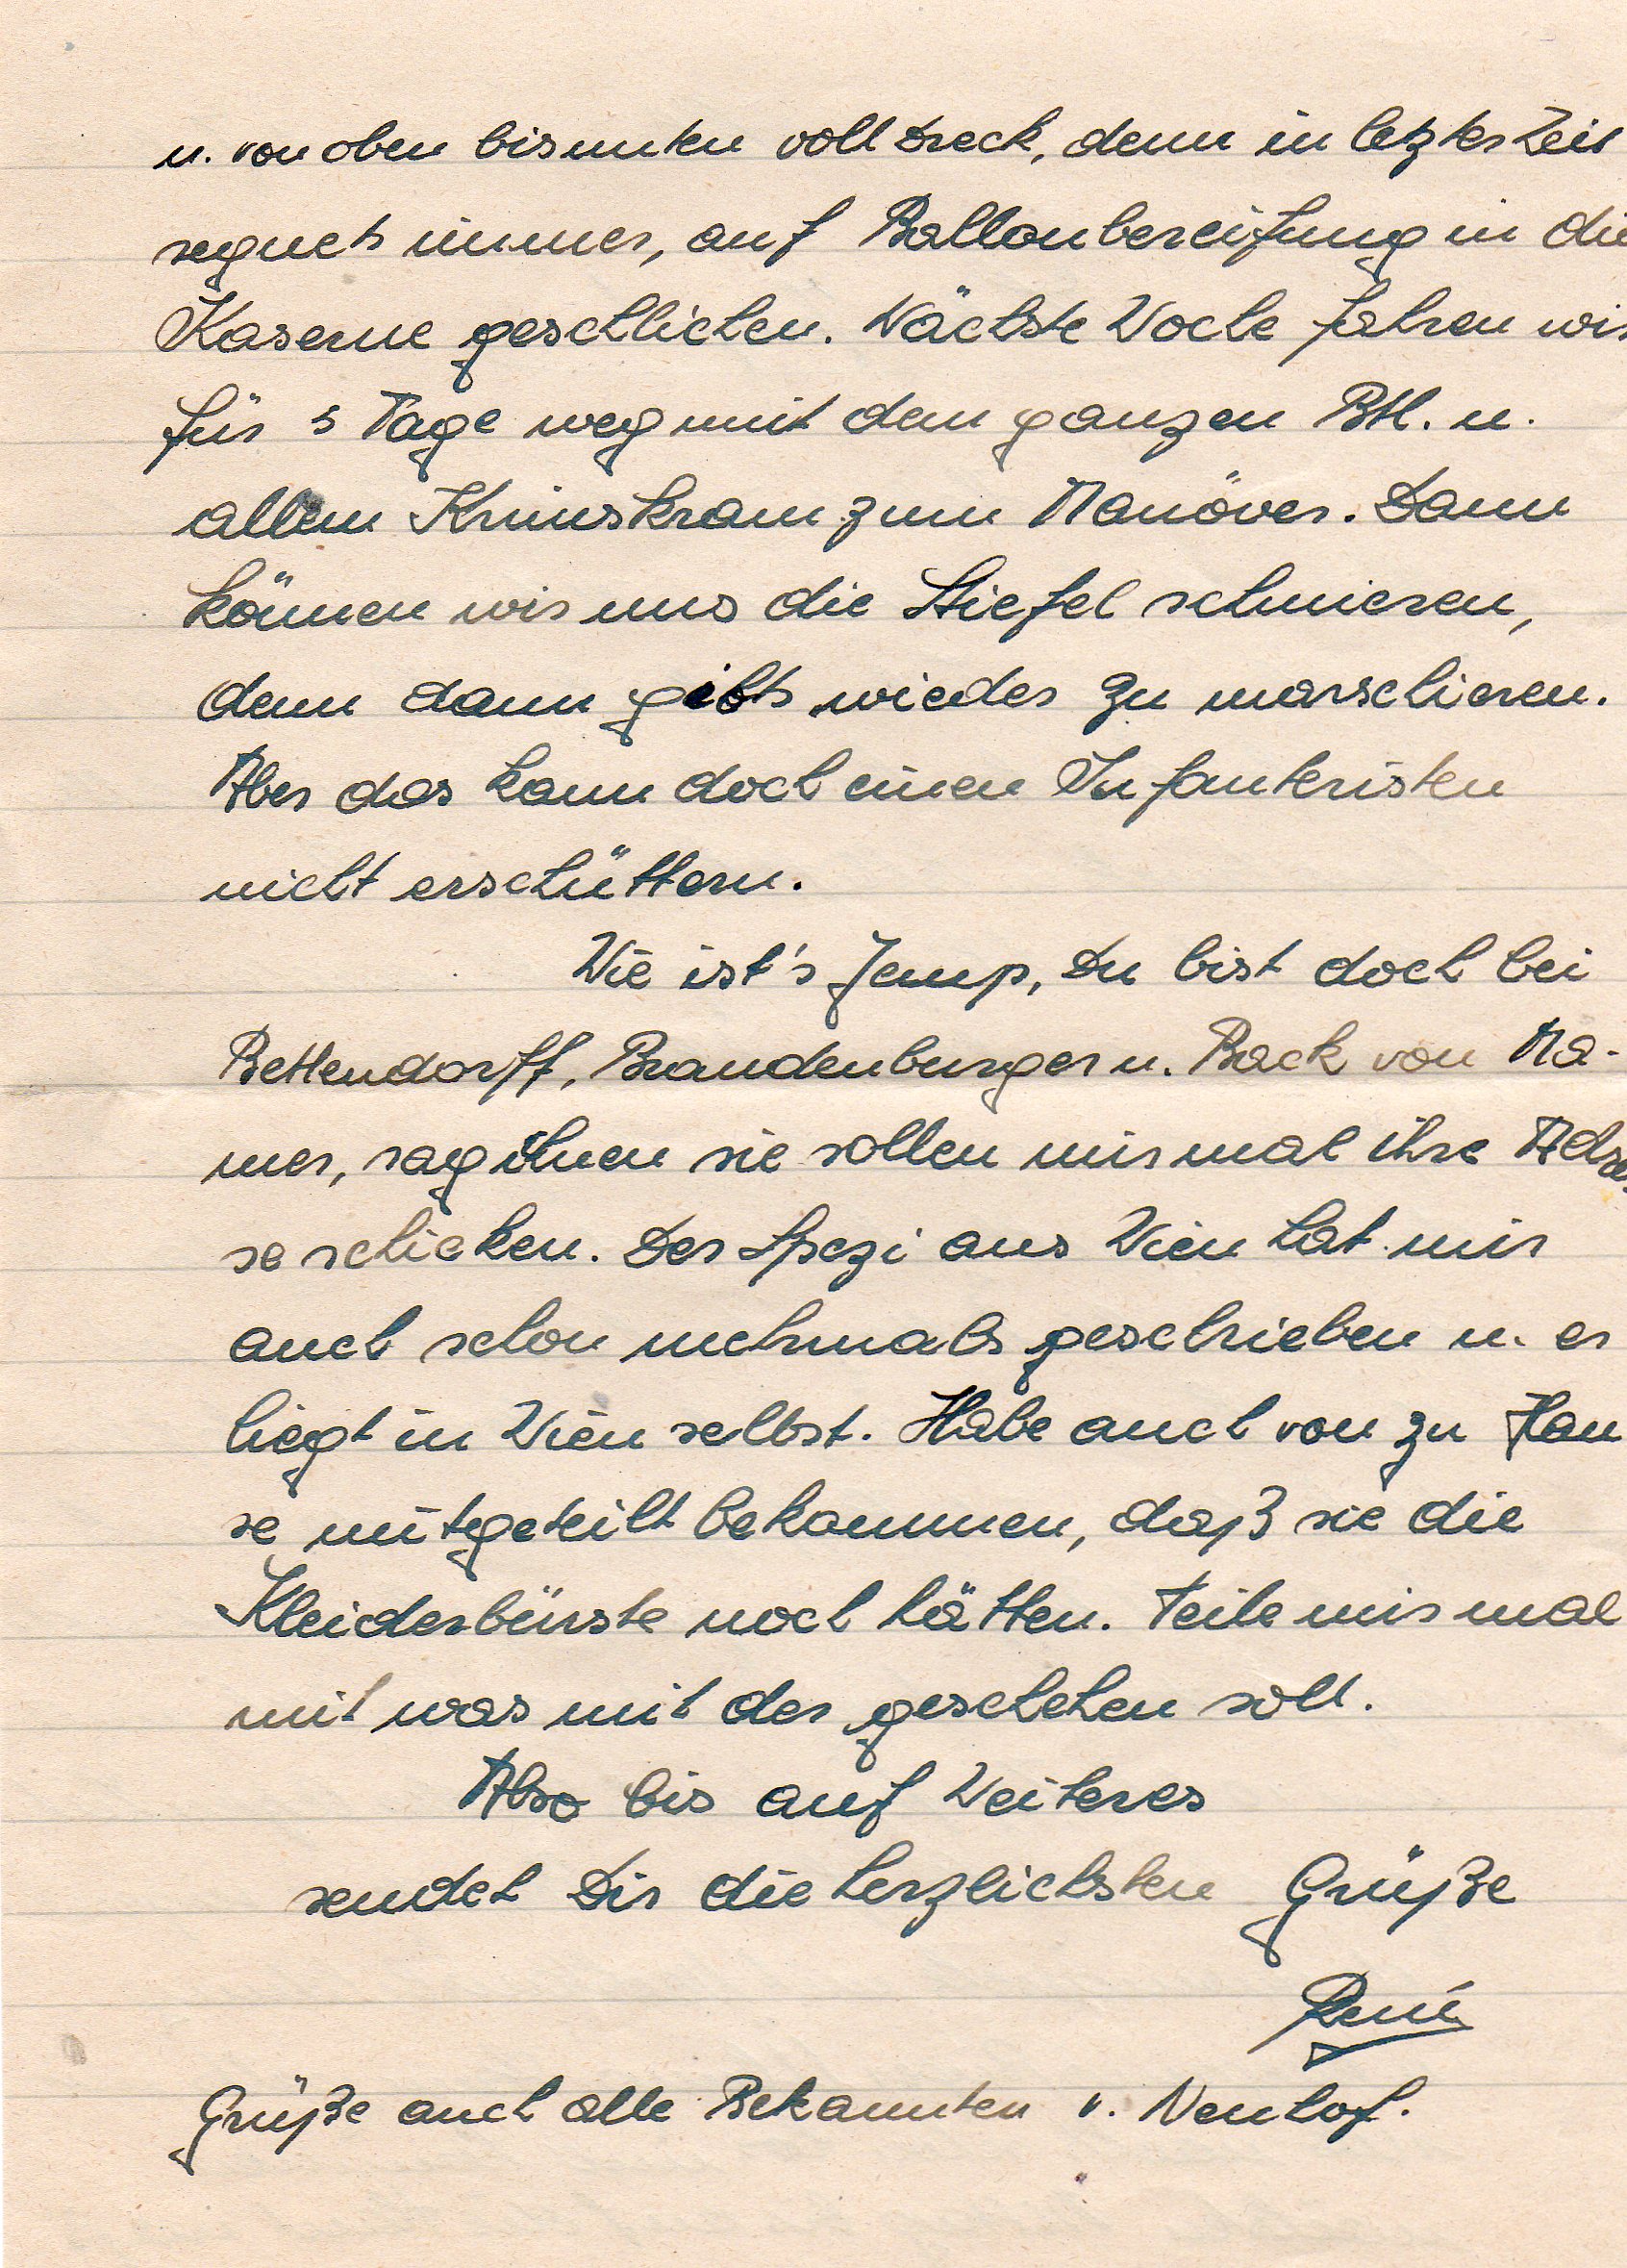 u. von oben bis unten voll Dreck, denn in letzter Zeit
regnets immer, auf Ballonbereifung in die
Kaserne geschlichen. Nächste Woche fahren wir
für 3 Tage weg mit dem ganzen Btl. u.
allem Krimskram zum Manöver. Dann
können wir uns die Stiefel schmieren,
denn dann gibts wieder zu marschieren.
Aber das kann doch einen Infanteristen
nicht erschüttern.
Wie ist's Jemp, Du bist doch bei
Bettendorff, Brandenburger u. Back von Ma-
mer, sag ihnen sie sollen mir mal ihre Adres-
se schicken. Der Spezi aus Wien hat mir
auch schon mehrmals geschrieben u. er
liegt in Wien selbst. Habe auch von zu Hau
se mitgeteilt bekommen, daß sie die
Kleiderbürste noch hätten. Teile mir mal
mit was mit der geschehen soll.
Also bis auf Weiteres
sendet Dir die herzlichsten Grüße
René
Grüße auch alle Bekannten v. Neuhof.